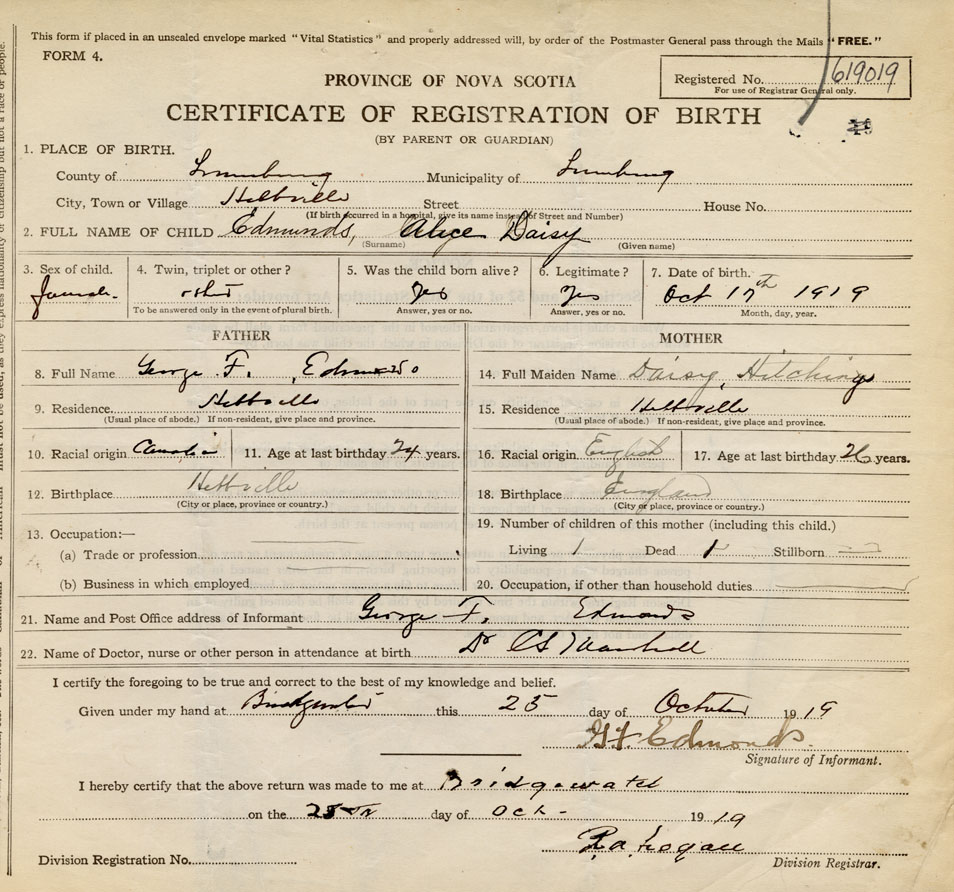 This form if placed in an unsealed envelope marked "Vital Statistics" and properly addressed will, by order of the Postmaster General pass through the Mails "FREE."
FORM 4.
Registered No. 619019
For use of Registrar General only.
PROVINCE OF NOVA SCOTIA
CERTIFICATE OF REGISTRATION OF BIRTH
(BY PARENT OR GUARDIAN)
1. PLACE OF BIRTH.
County of Lunenburg Municipality of Lunenburg
City, Town or Village Hebbville Street House No.
(If birth occurred in a hospital, give its name instead of Street and Number)
2. FULL NAME OF CHILD Edmunds, Alice Daisy
(Surname) (Given name)
3. Sex of child. 4. Twin, triplet or other? 5. Was the child born alive? 6. Legitimate? 7. Date of birth.
Female. other Yes Yes Oct 17th 1919
To be answered only in the event of plural birth. Answer, yes or no. Answer, yes or no. Month, day, year.
FATHER MOTHER
8. Full Name George F. Edmunds 14. Full Maiden Name Daisy Hitchings
9. Residence. Hebbville 15. Residence Hebbville
(Usual place of abode.) If non-resident, give place and province. (Usual place of abode.) If non-resident, give place and province.
10. Racial origin 11. Age at last birthday 24 years. 16. Racial origin English 17. Age at last birthday years.
12. Birthplace Hebbville 18. Birthplace England
(City or place, province or country.) (City or place, province or country.)
13. Occupation:— 19. Number of children of this mother (including this child.)
(a) Trade or profession Living 1 Dead 1 Stillborn —
(b) Business in which employed 20. Occupation, if other than household duties
21. Name and Post Office address of Informant George F. Edmonds
22. Name of Doctor, nurse or other person in attendance at birth Dr CS Marshall
I certify the foregoing to be true and correct to the best of my knowledge and belief.
Given under my hand at Bridgewater this 25 day of October 1919
G F Edmonds.
Signature of Informant.
I hereby certify that the above return was made to me at Bridgewater
on the day of Oct- 1919
R.A. Logan
Division Registration No. Division Registrar.